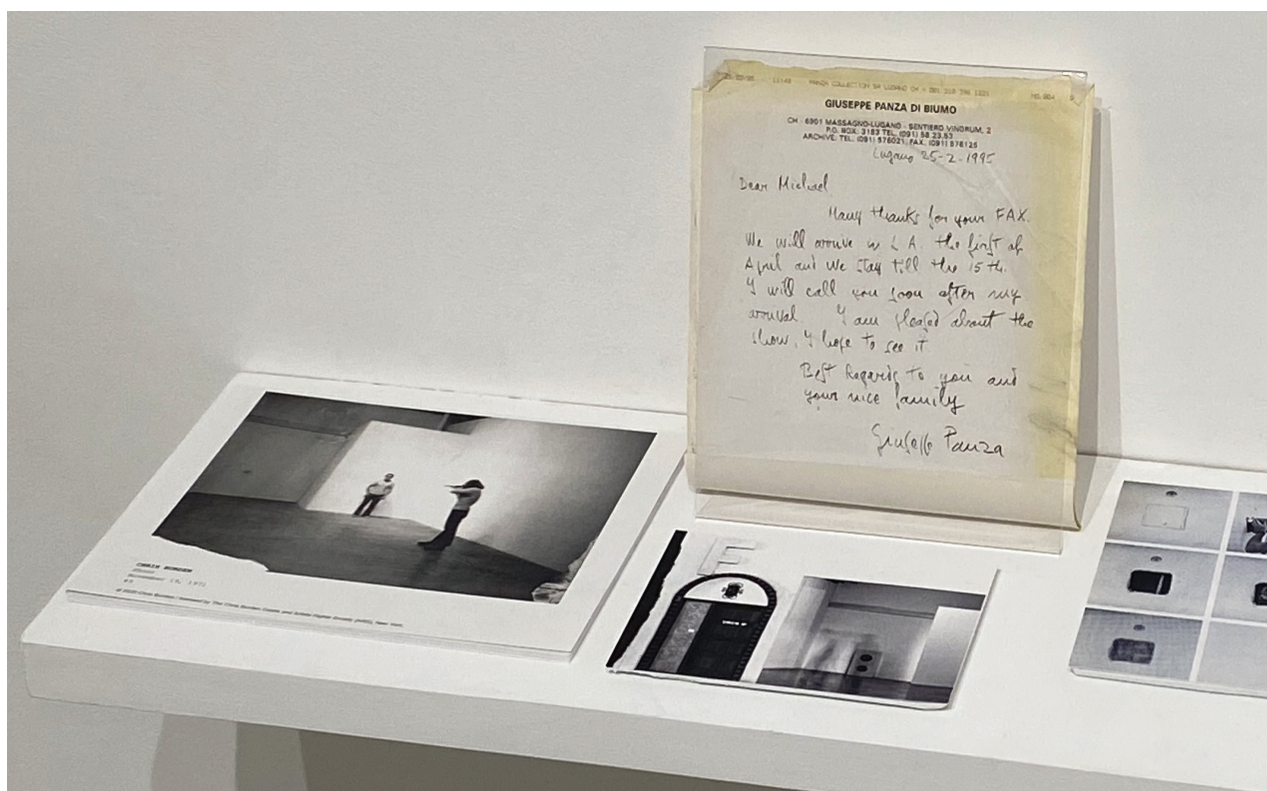 25 02/95 11:48 PANZA COLLECTION SA LUGANO CH → 001 310 396 1221 NO.904
GIUSEPPE PANZA DI BIUMO
CH - 6901 MASSAGNO-LUGANO - SENTIERO VINORUM, 2
P.O. BOX: 3183 TEL. (091) 56.23.53
ARCHIVE: TEL. (091) 576021, FAX. (091) 576125
Lugano 25-2-1995
Dear Michael
Many thanks for your FAX.
We will arrive in L A. the first of
April and we stay till the 15 th.
I will call you soon after my
arrival. I am pleased about the
show, I hope to see it
Best Regards to you and
your nice family
Giuseppe Panza
CHRIS BURDEN
Shoot
November 19, 1971
F